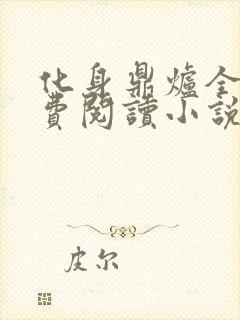 化身鼎爐全
費閱讀小說
皮尔